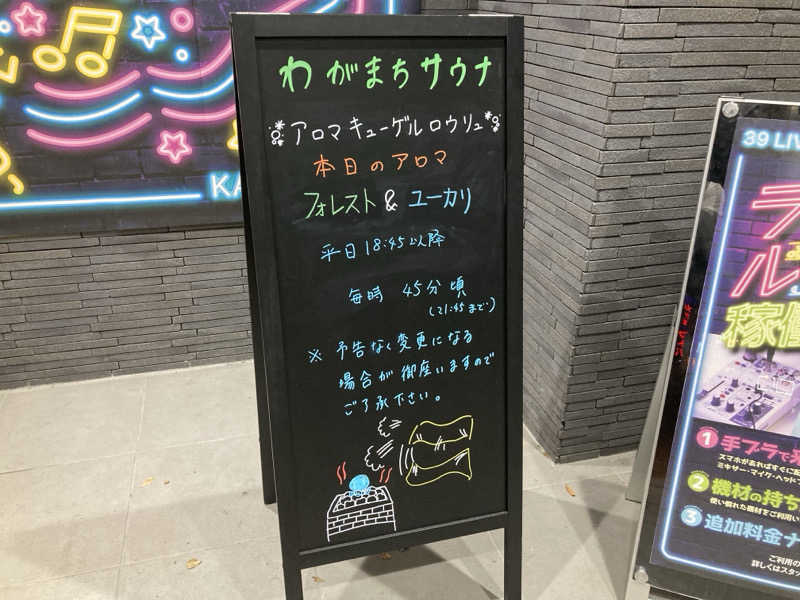 わがまちサウナ
アロマキューゲルロウリュ
本日のアロマ
フォレスト & ユーカリ
平日18:45以降
毎時 45分頃
(21:45まで)
※ 予告なく変更になる
場合が御座いますので
ご了承下さい。
KA
39 LIV
ラ
ル
稼働
1 手ブラで
スマホがあればすぐに
ミキサー・マイク・ヘッド
2 機材の持ち
使い慣れた機材をご利用い
3 追加料金ナ
ご利用の
詳しくはスタッ